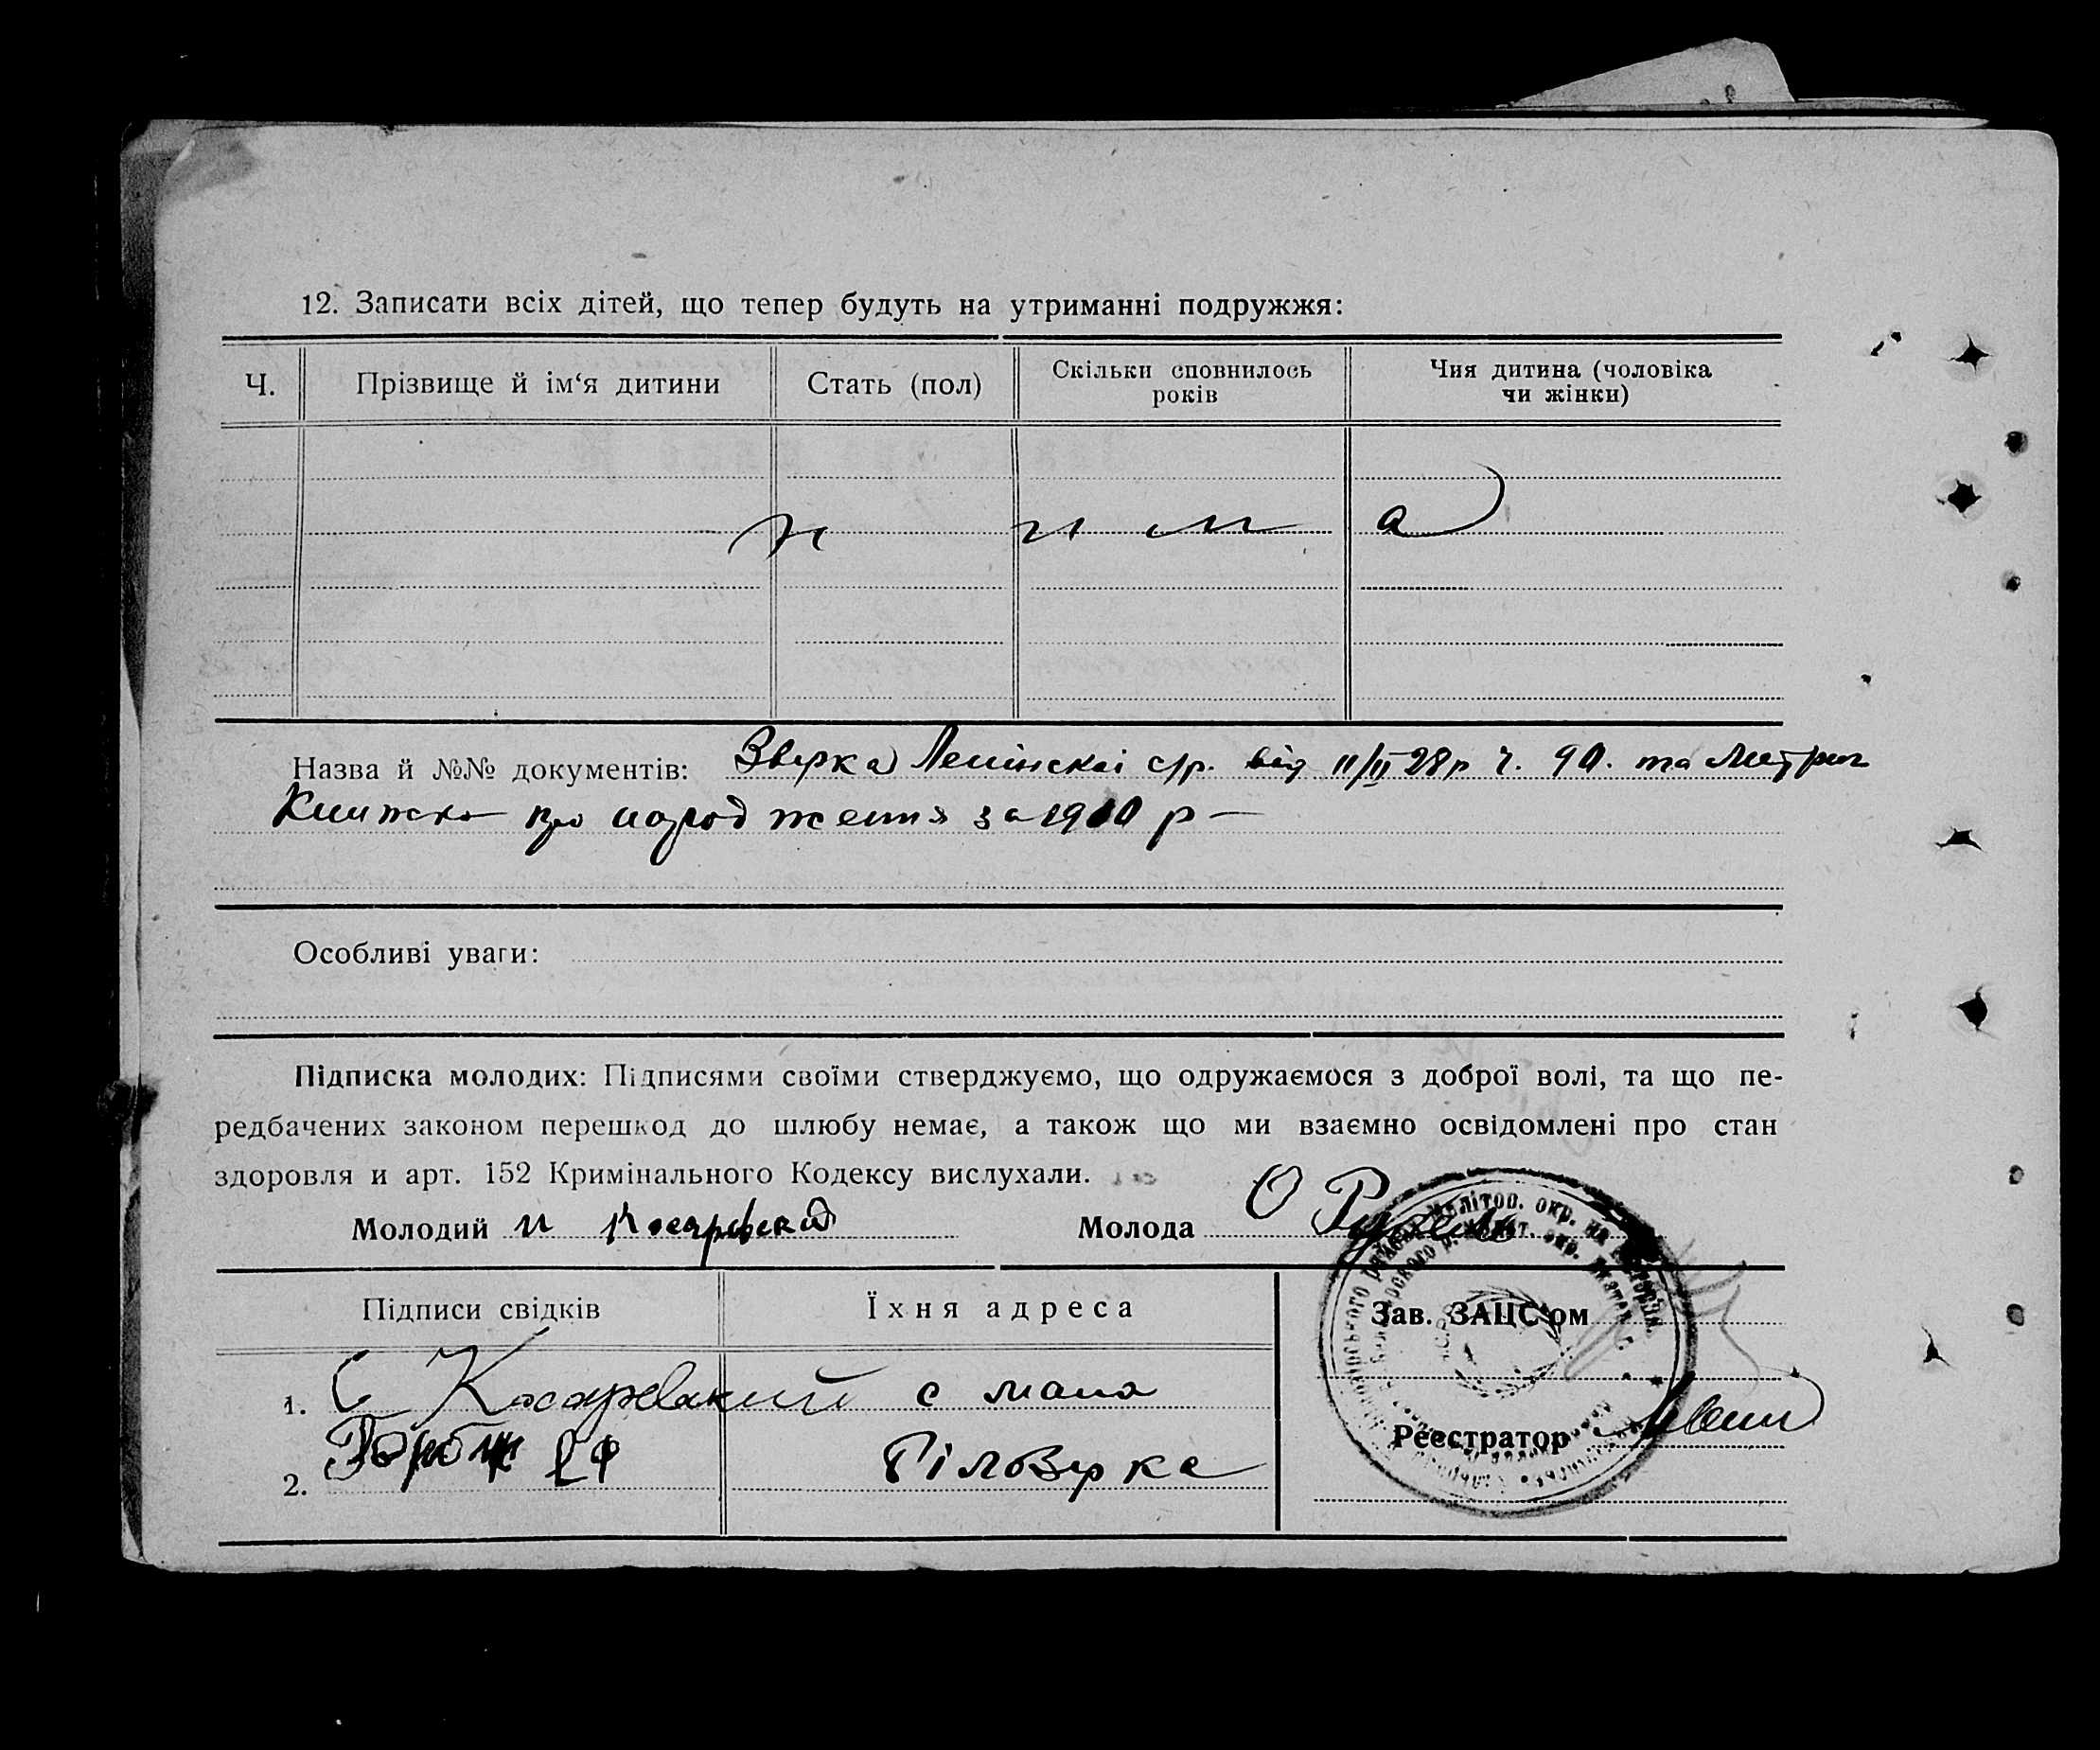 12. Записати всіх дітей, що тепер будуть на утриманні подружжя:
Ч. Прізвище й ім‘я дитини Стать (пол) Скільки сповнилось років Чия дитина (чоловіка чи жінки)
н и м а
Назва й №№ документів: Ленінскаі с/р. від 11/II 28р ч. 90. та Метрич
Книжка про народження за 1910 р —
Особливі уваги:
Підписка молодих: Підписями своїми стверджуємо, що одружаємося з доброї волі, та що пе-
редбачених законом перешкод до шлюбу немає, а також що ми взаємно освідомлені про стан
здоровля и арт. 152 Кримінального Кодексу вислухали.
Молодий и Косаревский Молода О
Підписи свідків Їхня адреса Зав. ЗАЦС‘ом
1. С Косаревский с
2. Реєстратор
Мелітоп. окр.